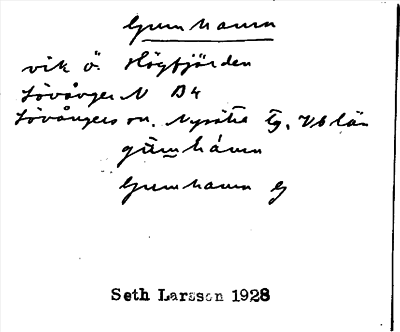 Gumhamn
vik ö. Högfjärden
Lövånger N B4
Lövångers sn. Nysätra tg. Vb län
Gumhamn
Seth Larsson 1928